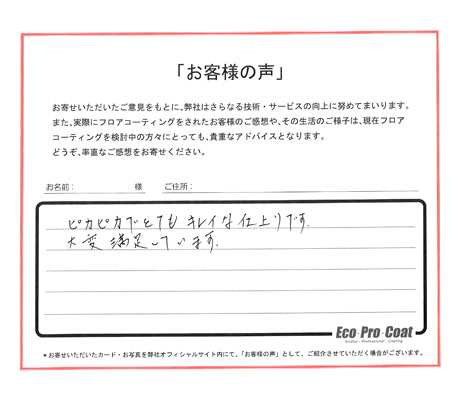 「お客様の声」
お寄せいただいたご意見をもとに、弊社はさらなる技術・サービスの向上に努めてまいります。
また、実際にフロアコーティングをされたお客様のご感想や、その生活のご様子は、現在フロア
コーティングを検討中の方々にとっても、貴重なアドバイスとなります。
どうぞ、率直なご感想をお寄せください。
お名前： 様 ご住所：
ピカピカでとてもキレイな仕上りです。
大変満足しています。
Eco・Pro・Coat
＊お寄せいただいたカード・お写真を弊社オフィシャルサイト内にて、「お客様の声」として、ご紹介させていただく場合がございます。